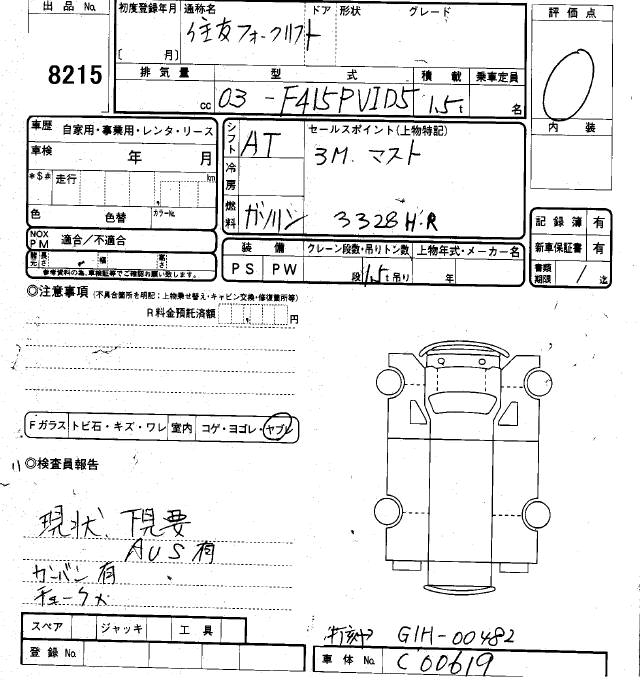 出品 No.
8215
初度登録年月
〔 月〕
通称名 ドア 形状 グレード
住友フォークリフト
排気量 型式 積載 乗車定員
cc 03 -F415PVID5 1.5t 名
評価点
内装
車歴 自家用・事業用・レンタ・リース
車検 年 月
*$# 走行 km
色 色替 カラーNo.
NOX PM 適合/不適合
諸元 長さ 幅 高さ
参考資料の為、車検証等でご確認お願い致します。
シフト AT
冷房
燃料 ガソリン
セールスポイント(上物特記)
3M. マスト
3328 H.R
装備 クレーン段数・吊りトン数 上物年式・メーカー名
PS PW 段 1.5t吊り 年
記録簿 有
新車保証書 有
書類期限 / 迄
◎注意事項 (不具合箇所を明記:上物乗せ替え・キャビン交換・修復箇所等)
R料金預託済額 円
Fガラス トビ石・キズ・ワレ 室内 コゲ・ヨゴレ・ヤブレ
◎検査員報告
現状、下見要
AUS有
カンバン有
チョーク×
スペア ジャッキ 工具
登録 No.
打刻→ G1H-00482
車体 No. C00619